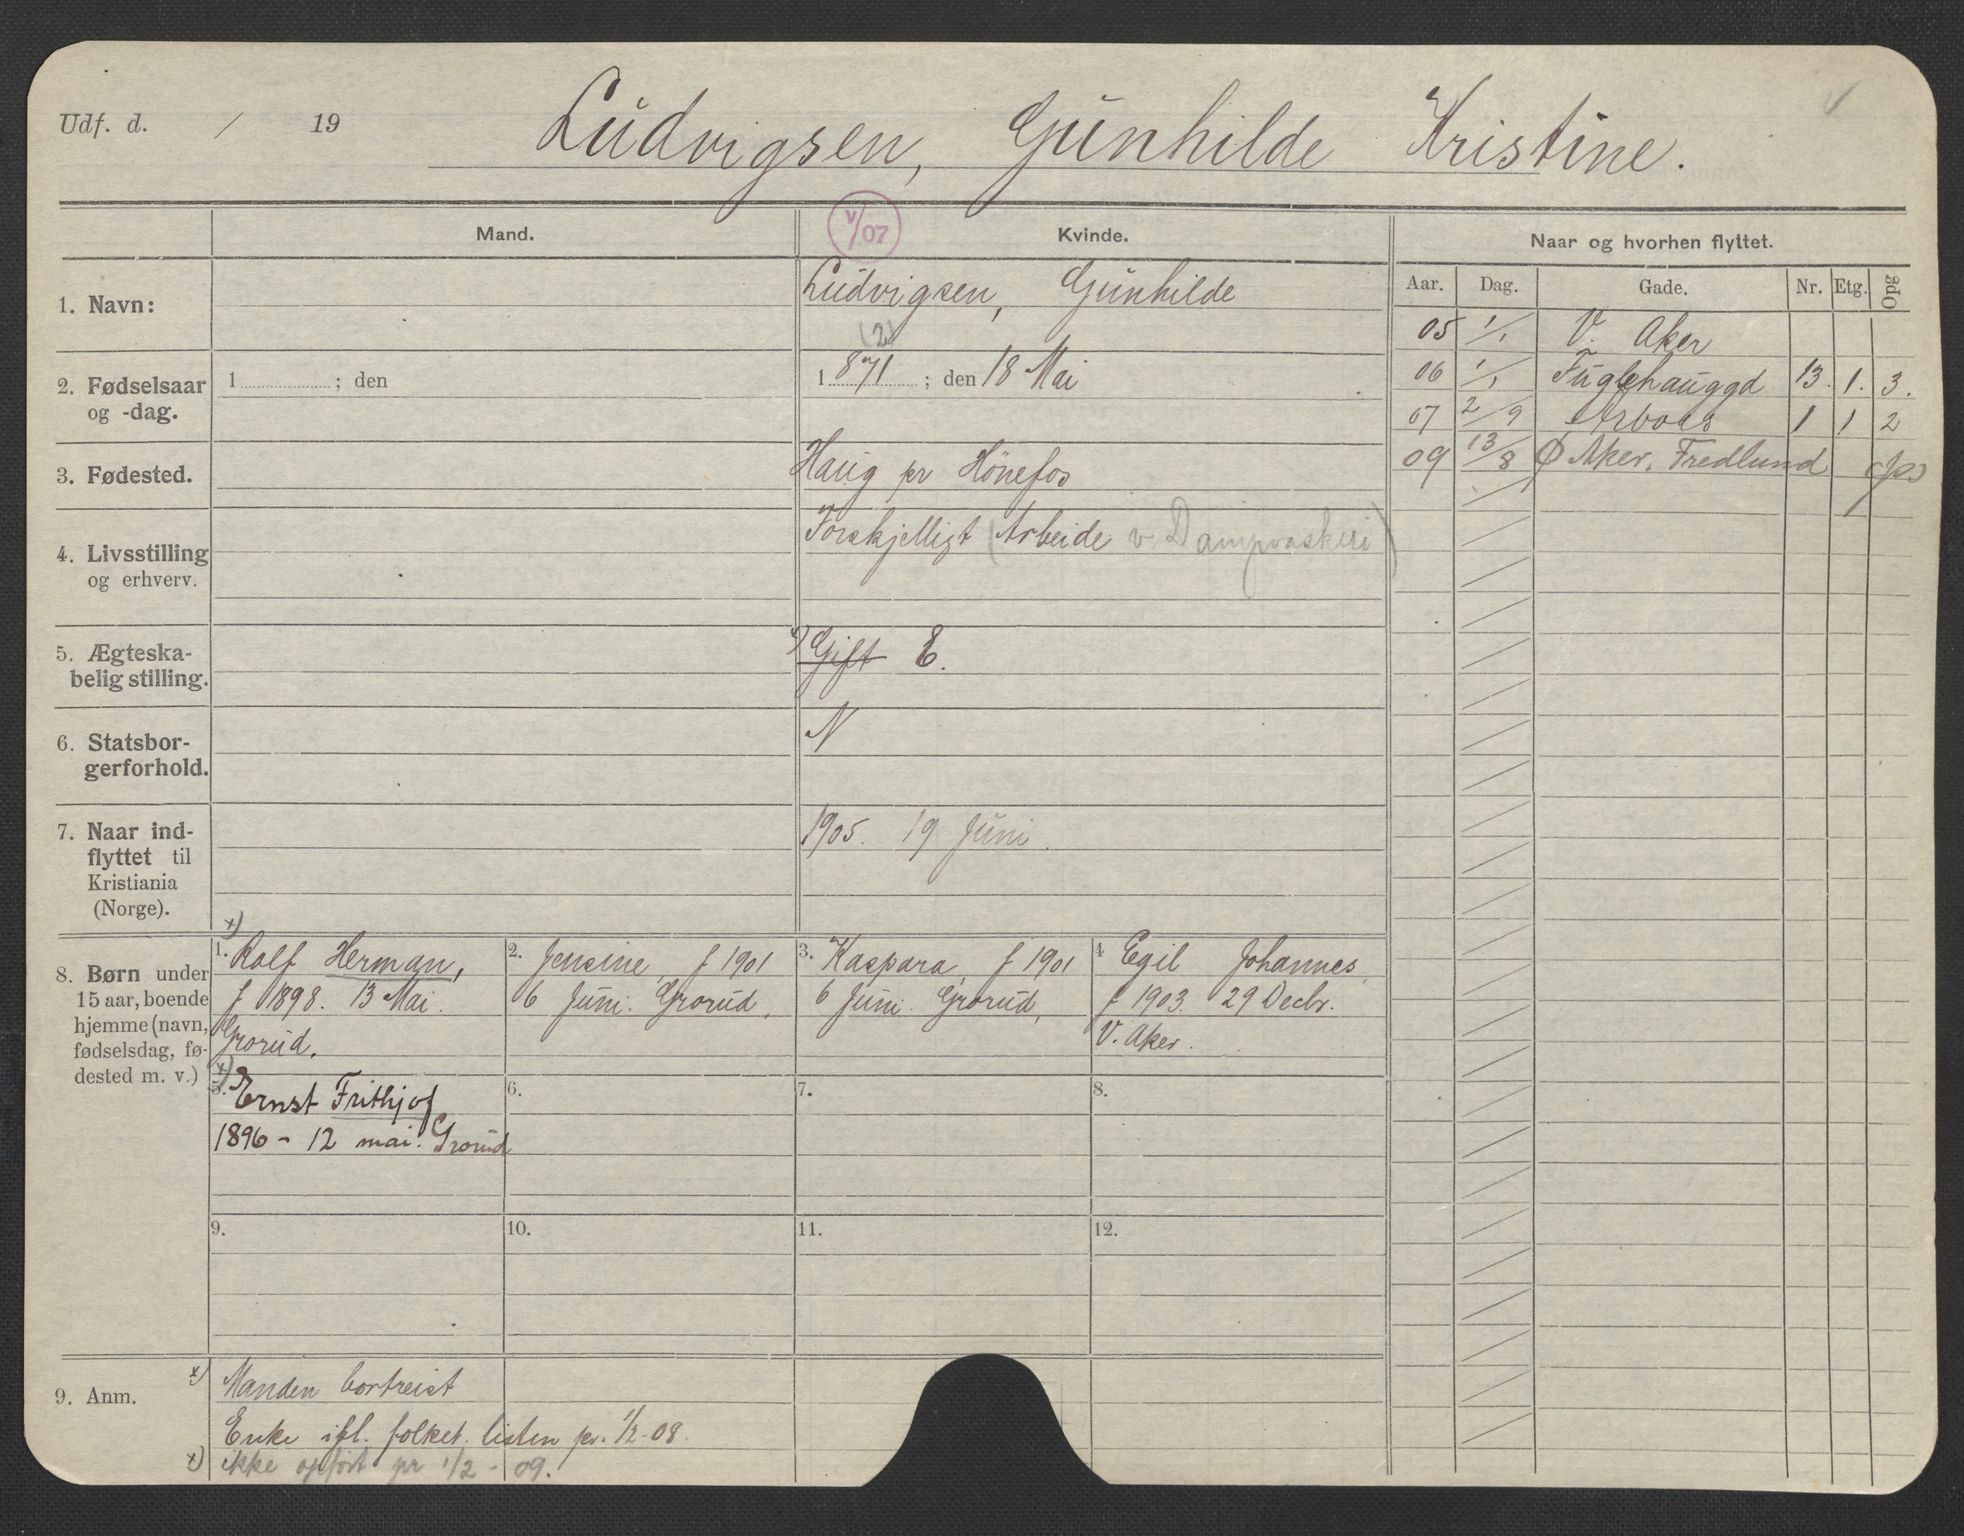 Udf. d. / 19
Ludvigsen, Gunhilde Kristine.
v/07
Mand.
Kvinde.
Naar og hvorhen flyttet.
Aar. Dag. Gade. Nr. Etg. Opg
05 1/1 V. Aker
06 1/1 Fuglehauggd 13. 1. 3.
07 2/9 Arboss 1 1 2
09 13/8 Ø Aker. Fredlund
1. Navn:
Ludvigsen, Gunhilde
2. Fødselsaar
og -dag.
1 ; den
(2)
1871 ; den 18 Mai
3. Fødested.
Haug pr Hönefos
4. Livsstilling
og erhverv.
Forskjelligt (Arbeide v. Dampvaskeri)
5. Ægteska-
belig stilling.
x) Gift E.
6. Statsbor-
gerforhold.
N
7. Naar ind-
flyttet til
Kristiania
(Norge).
1905. 19 Juni.
8. Børn under
15 aar, boende
hjemme (navn,
fødselsdag, fø-
dested m. v.)
x)
1. Rolf Herman,
f 1898. 13 Mai.
Grorud.
2. Jensine, f 1901
6 Juni. Grorud,
3. Kaspara, f 1901
6 Juni. Grorud,
4 Egil Johannes,
f 1903. 29 Decbr.
V. Aker.
x)
5. Ernst Frithjof
1896 - 12 mai. Grorud
6.
7.
8.
9.
10.
11.
12.
9. Anm.
x) Manden bortreist
Enke ifl. folket. listen pr. 1/2-08.
x) ikke opført pr 1/2 - 09.